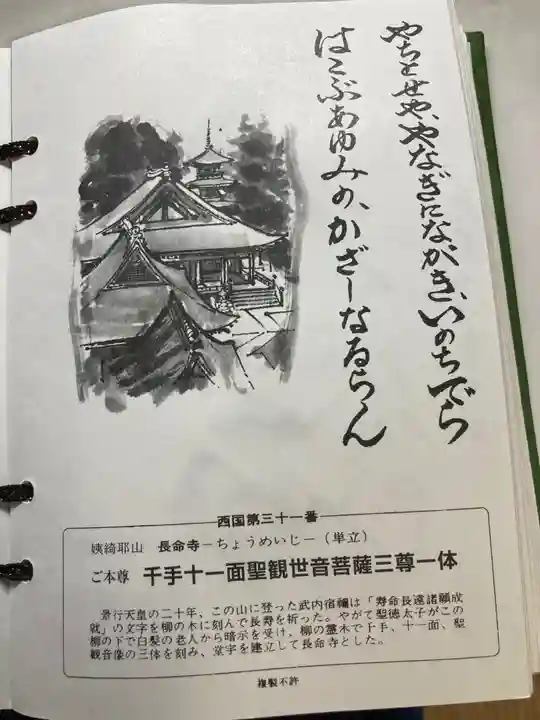 やちとせや、やなぎにながき、いのちでら
はこぶあゆみの、かざしなるらん
西国第三十一番
姨綺耶山 長命寺－ちょうめいじ－（単立）
ご本尊 千手十一面聖観世音菩薩三尊一体
景行天皇の二十年、この山に登った武内宿禰は「寿命長遠諸願成
就」の文字を柳の木に刻んで長寿を祈った。やがて聖徳太子がこの
柳の下で白髪の老人から暗示を受け、柳の霊木で千手、十一面、聖
観音像の三体を刻み、堂宇を建立して長命寺とした。
複製不許